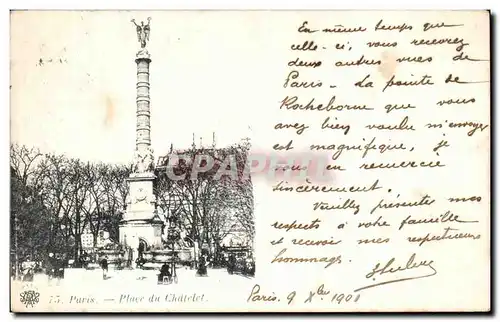 En même temps que
celle-ci, vous recevrez
deux autres vues de
Paris - La pointe de
Rochebonne que vous
avez bien voulu m'envoyer
est magnifique, je
vous en remercie
sincèrement.
Veuillez présenter mes
respects à votre famille
et recevoir mes respectueux
hommages.
Paris, 9 Xbre 190
75. PARIS. — Place du Châtelet.
CPArama